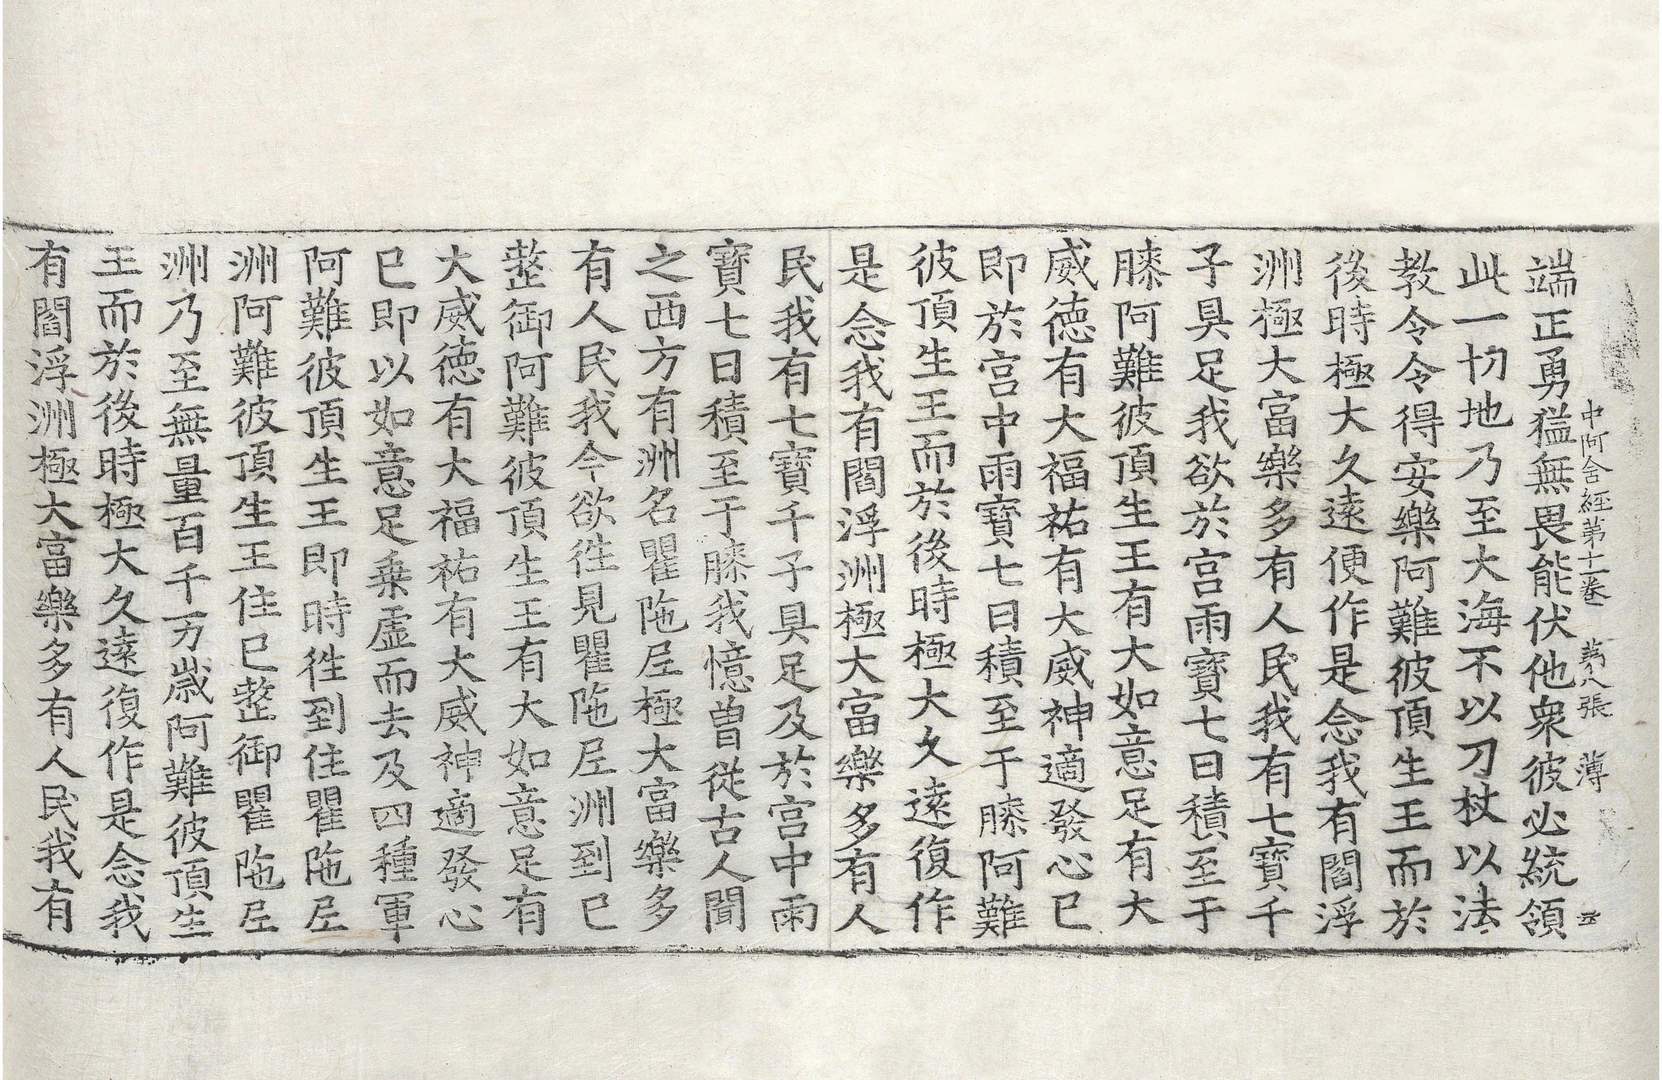 中阿含經第十一卷 第八張 薄
端正勇猛無畏能伏他衆彼必統領
此一切地乃至大海不以刀杖以法
教令令得安樂阿難彼頂生王而於
後時極大久遠便作是念我有閻浮
洲極大富樂多有人民我有七寶千
子具足我欲於宮雨寶七日積至于
膝阿難彼頂生王有大如意足有大
威德有大福祐有大威神適發心已
即於宮中雨寶七日積至于膝阿難
彼頂生王而於後時極大久遠復作
是念我有閻浮洲極大富樂多有人
民我有七寶千子具足及於宮中雨
寶七日積至于膝我憶曽從古人聞
之西方有洲名瞿陁尼極大富樂多
有人民我今欲往見瞿陁尼洲到已
整御阿難彼頂生王有大如意足有
大威德有大福祐有大威神適發心
已即以如意足乗虛而去及四種軍
阿難彼頂生王即時往到住瞿陁尼
洲阿難彼頂生王住已整御瞿陁尼
洲乃至無量百千万歲阿難彼頂生
王而於後時極大久遠復作是念我
有閻浮洲極大富樂多有人民我有